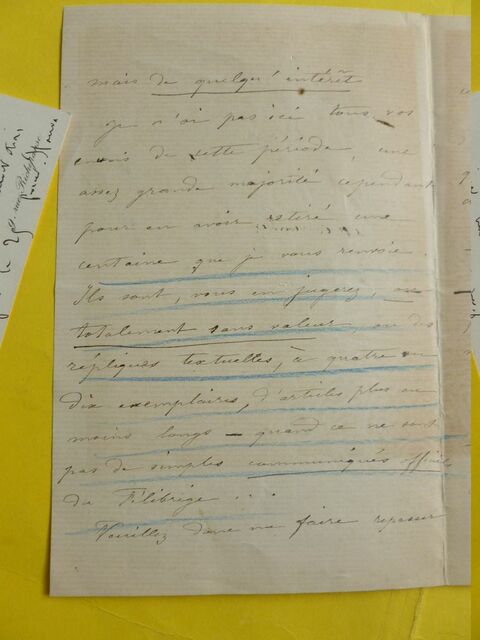 mais de quelqu'intérêt
Je n'ai pas ici tous vos
envois de cette période, une
assez grande majorité cependant
pour en avoir retiré une
centaine que je vous renvoie.
Ils sont, vous en jugerez, ou
totalement sans valeur, ou des
répliques textuelles, à quatre ou
dix exemplaires, d'articles plus ou
moins longs – quand ce ne sont
pas de simples communiqués officiels
du Félibrige . . .
Veuillez donc me faire repasser